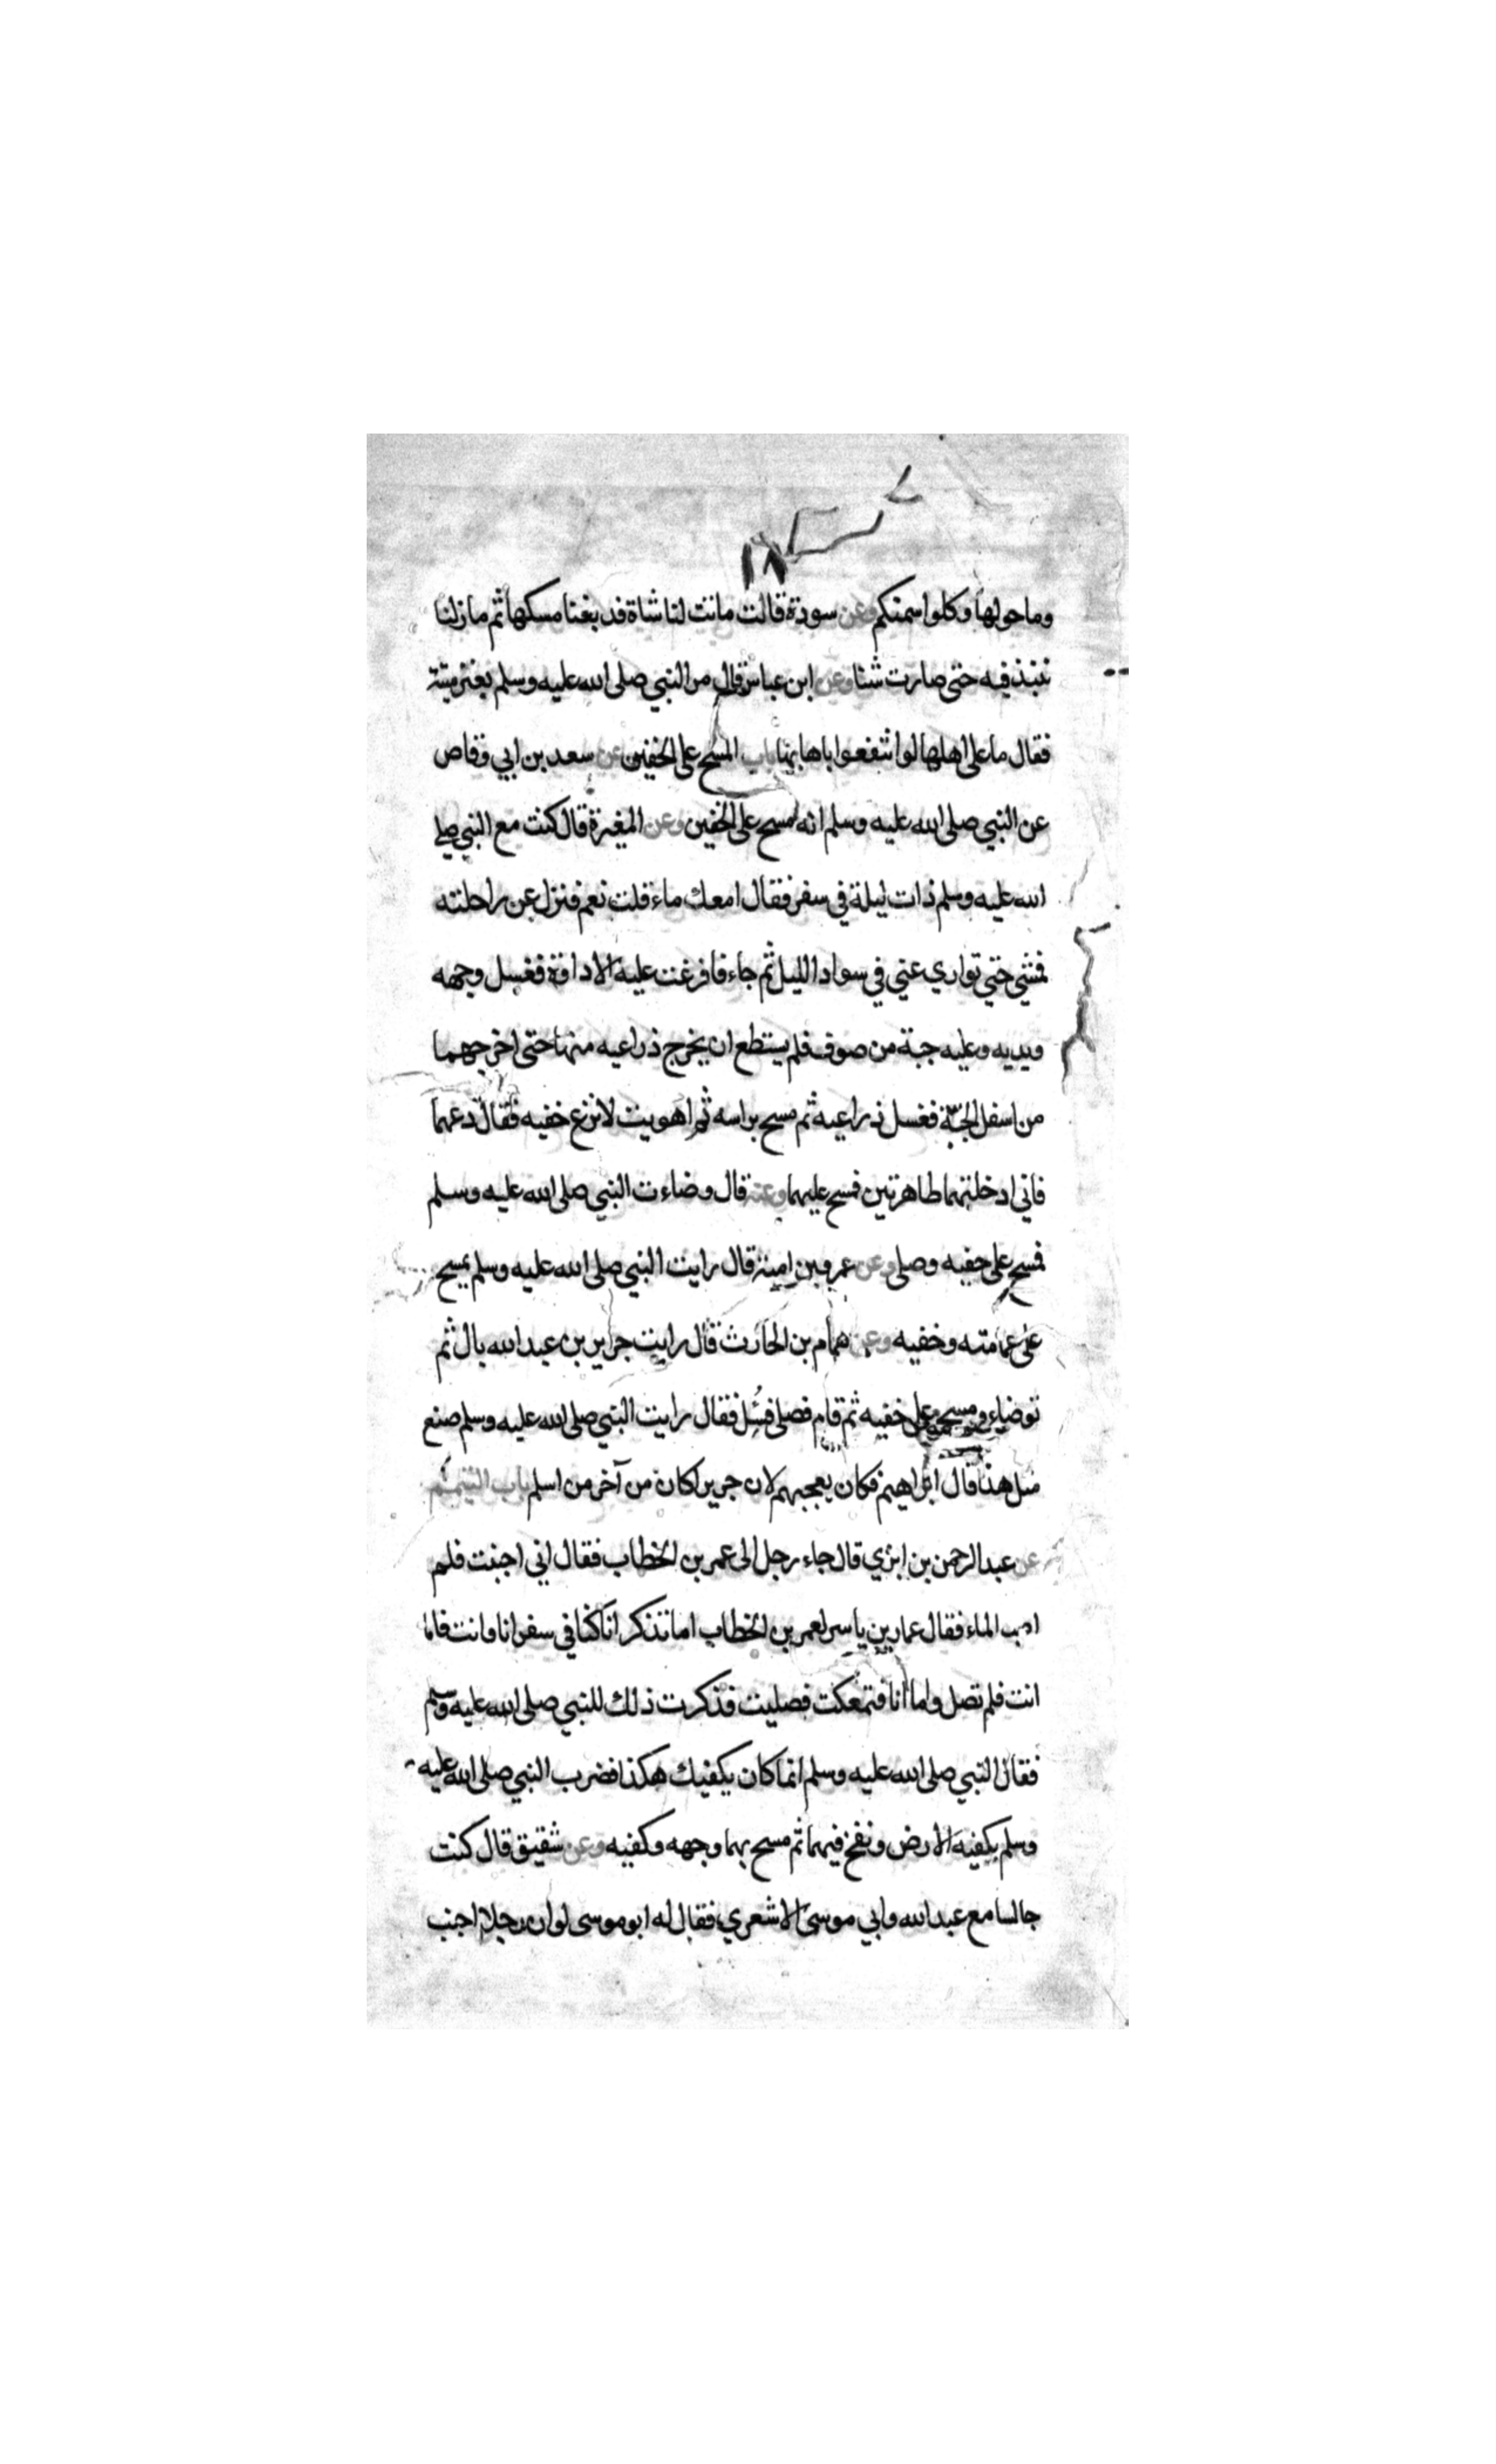 ١٨
وما حولها وكلوا سمنكم وعن سودة قالت ماتت لنا شاة فدبغنا مسكها ثم ما زلنا
ننبذ فيه حتى صارت شنا وعن ابن عباس قال مر النبي صلى الله عليه وسلم بعنز ميتة
فقال ما على اهلها لو انتفعوا باهابها باب المسح على الخفين عن سعد بن ابي وقاص
عن النبي صلى الله عليه وسلم انه مسح على الخفين وعن المغيرة قال كنت مع النبي صلى
الله عليه وسلم ذات ليلة في سفر فقال امعك ماء قلت نعم فنزل عن راحلته
فمشي حتي تواري عني في سواد الليل ثم جاء فافرغت عليه الاداوة فغسل وجهه
ويديه وعليه جبة من صوف فلم يستطع ان يخرج ذراعيه منها حتى اخرجهما
من اسفل الجبة فغسل ذراعيه ثم مسح براسه ثم اهويت لانزع خفيه فقال دعهما
فاني ادخلتهما طاهرتين فمسح عليهما وعنه قال وضاءت النبي صلى الله عليه وسلم
فمسح على خفيه وصلى وعن عمرو بن امية قال رايت النبي صلى الله عليه وسلم يمسح
على عمامته وخفيه وعن همام بن الحارث قال رايت جرير بن عبد الله بال ثم
توضاء ومسح على خفيه ثم قام فصلى فسُئل فقال رايت النبي صلى الله عليه وسلم صنع
مثل هذا قال ابراهيم فكان يعجبهم لان جرير اكان من آخر من اسلم باب التيمم
عن عبد الرحمن بن ابزي قال جاء رجل الى عمر بن الخطاب فقال اني اجنبت فلم
اصب الماء فقال عمار بن ياسر لعمر بن الخطاب اما تذكر انا كنا في سفر انا وانت فاما
انت فلم تصل واما انا فتمعكت فصليت فذكرت ذلك للنبي صلى الله عليه وسلم
فقال النبي صلى الله عليه وسلم انما كان يكفيك هكذا فضرب النبي صلى الله عليه
وسلم بكفيه الارض ونفخ فيهما ثم مسح بهما وجهه وكفيه وعن شقيق قال كنت
جالسا مع عبد الله وابي موسى الاشعري فقال له ابو موسى لو ان رجلا اجنب